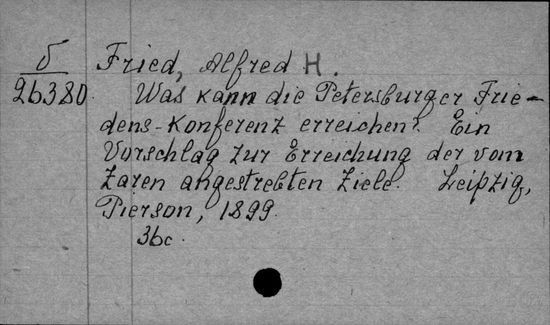 Fried, Alfred H.
26380. Was kann die Petersburger Frie-
dens-Konferenz erreichen? Ein
Vorschlag zur Erreichung der vom
Zaren angestrebten Ziele. Leipzig,
Pierson, 1899.